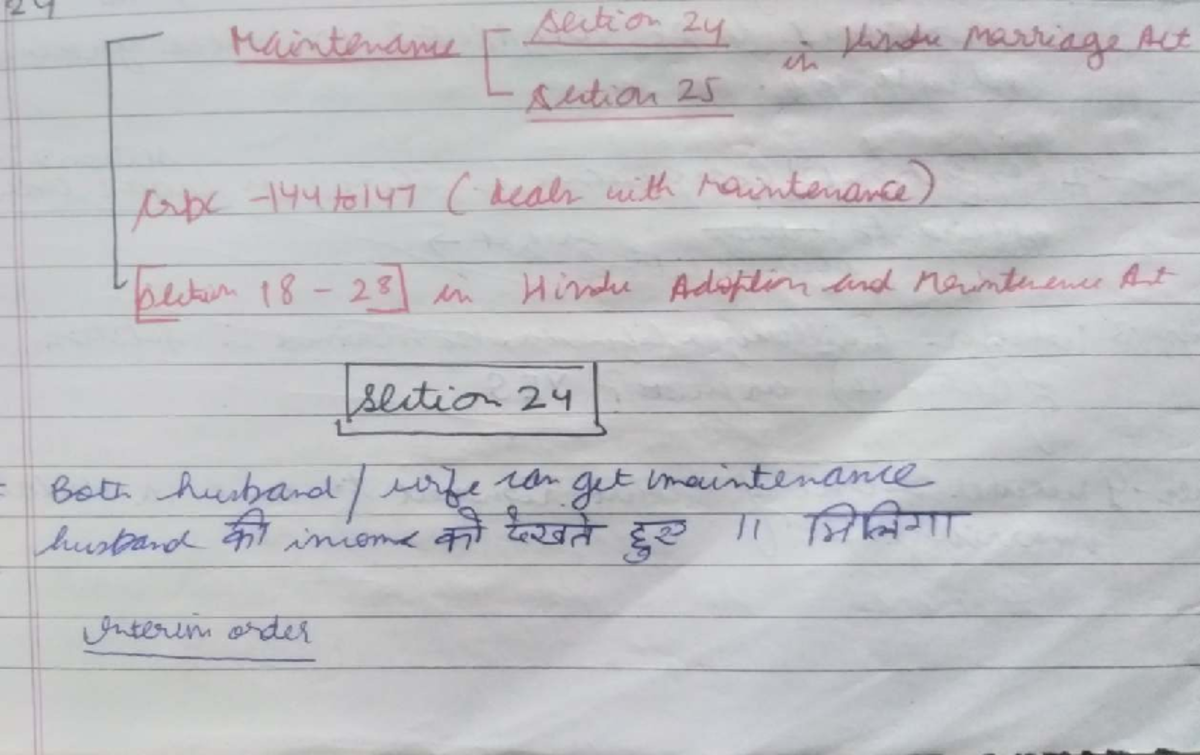 24
Maintenance Section 24 in Hindu Marriage Act
Section 25
CrPC - 144 to 147 (deals with Maintenance)
[Section 18 - 28] in Hindu Adoption and Maintenance Act
Section 24
Both husband / wife can get maintenance
husband की income को देखते हुए 11 मिलिगा
Interim order